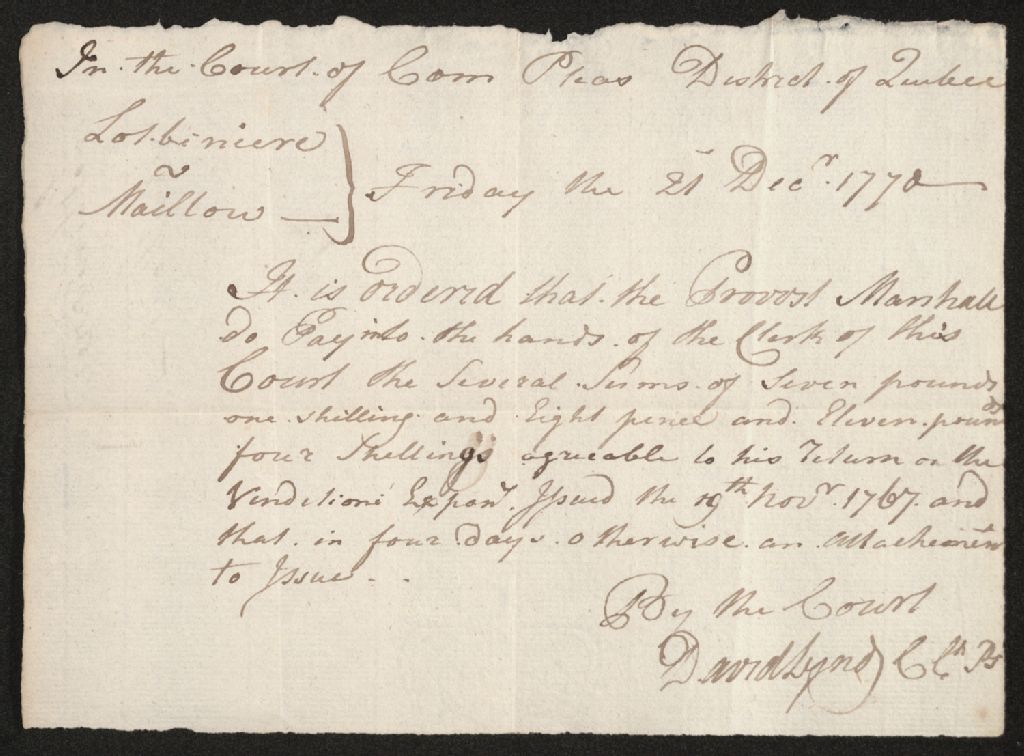 In the Court of Com Pleas District of Quebec
Lotbiniere
v
Maillow
Friday the 21 Decr. 1770
It is ordered that the Provost Marshall
do Pay into the hands of the Clerk of this
Court the Several Sums of Seven pounds
one shilling and Eight pence and Eleven pounds
four Shellings agreeable to his return on the
Venditioni Expons. Issued the 19th Novr. 1767 and
that in four days otherwise an attachement
to Issue
By the Court
David Lynd C Ct Ps